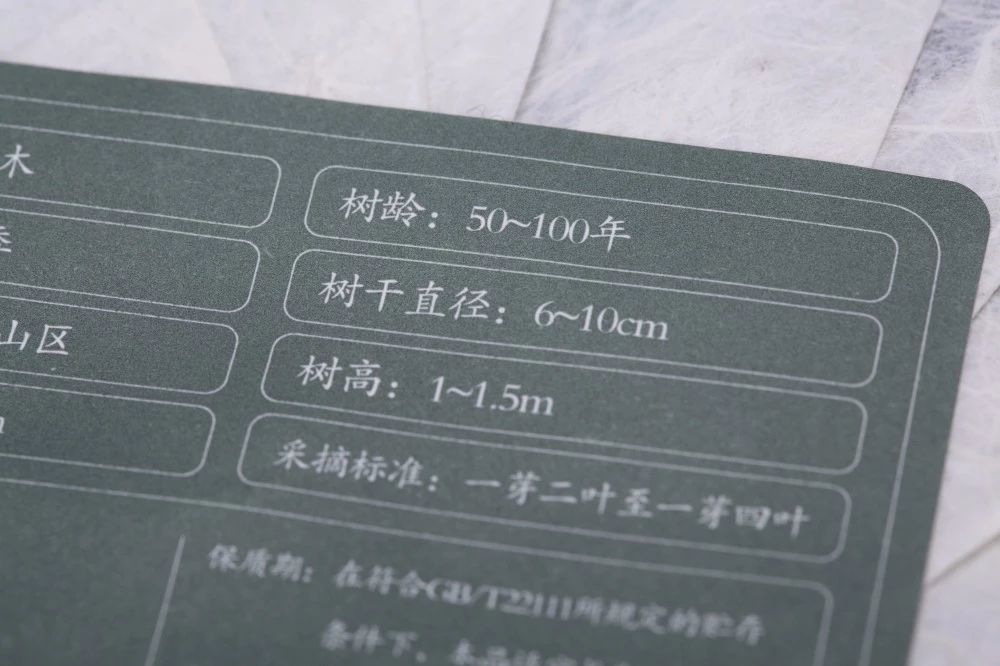 木
树龄：50~100年
树干直径：6~10cm
山区
树高：1~1.5m
采摘标准：一芽二叶至一芽四叶
保质期：在符合GB/T22111所规定的贮存
条件下，本品适宜